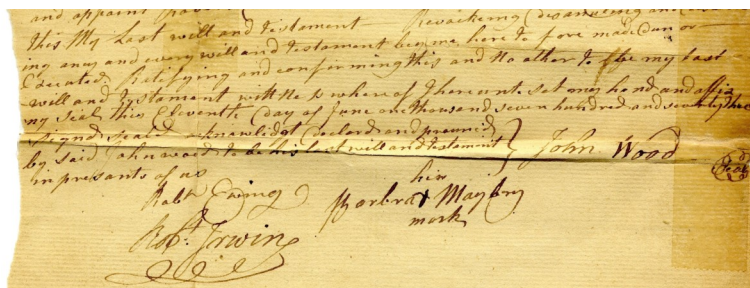 and appoint
this My Last will and testament Revoicking Disanuling and
ing aney and every will and testament by me here to fore made don or
Exected Retifying and confirming this and No other to be my last
will and testament with Ness where of I here unto set my hand and affix
my seal this Eleventh Day of June one thousand seven hundred and seventy three
signd seald acknowlidgt Declord and pronuncd
by said John wood to be his last will and testament John Wood
in presants of us Seal
Robt Ewing her
Barbra Maybry
mark
Robt. Irwin